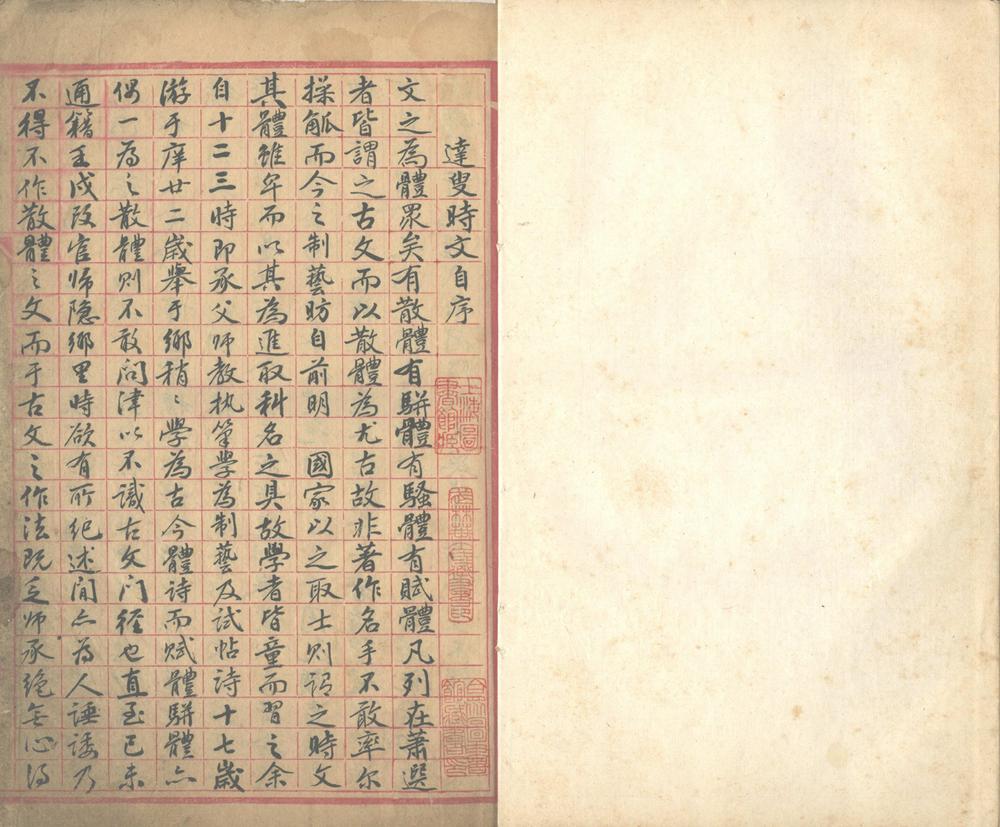 達叟時文自序
文之為體眾矣有散體有駢體有騷體有賦體凡列在蕭選
者皆謂之古文而以散體為尤古故非著作名手不敢率尔
操觚而今之制藝昉自前明 國家以之取士則謂之時文
其體雖卑而以其為進取科名之具故學者皆童而習之余
自十二三時即承父師教执筆學為制藝及試帖詩十七歲
游于庠廿二歲舉于鄉稍〻學為古今體詩而賦體駢體亦
偶一為之散體則不敢問津以不識古文门徑也直至己未
通籍壬戌改官归隐鄉里時欲有所纪述间亦为人諈諉乃
不得不作散體之文而于古文之作法既乏师承絶无心得
上海圖書館藏